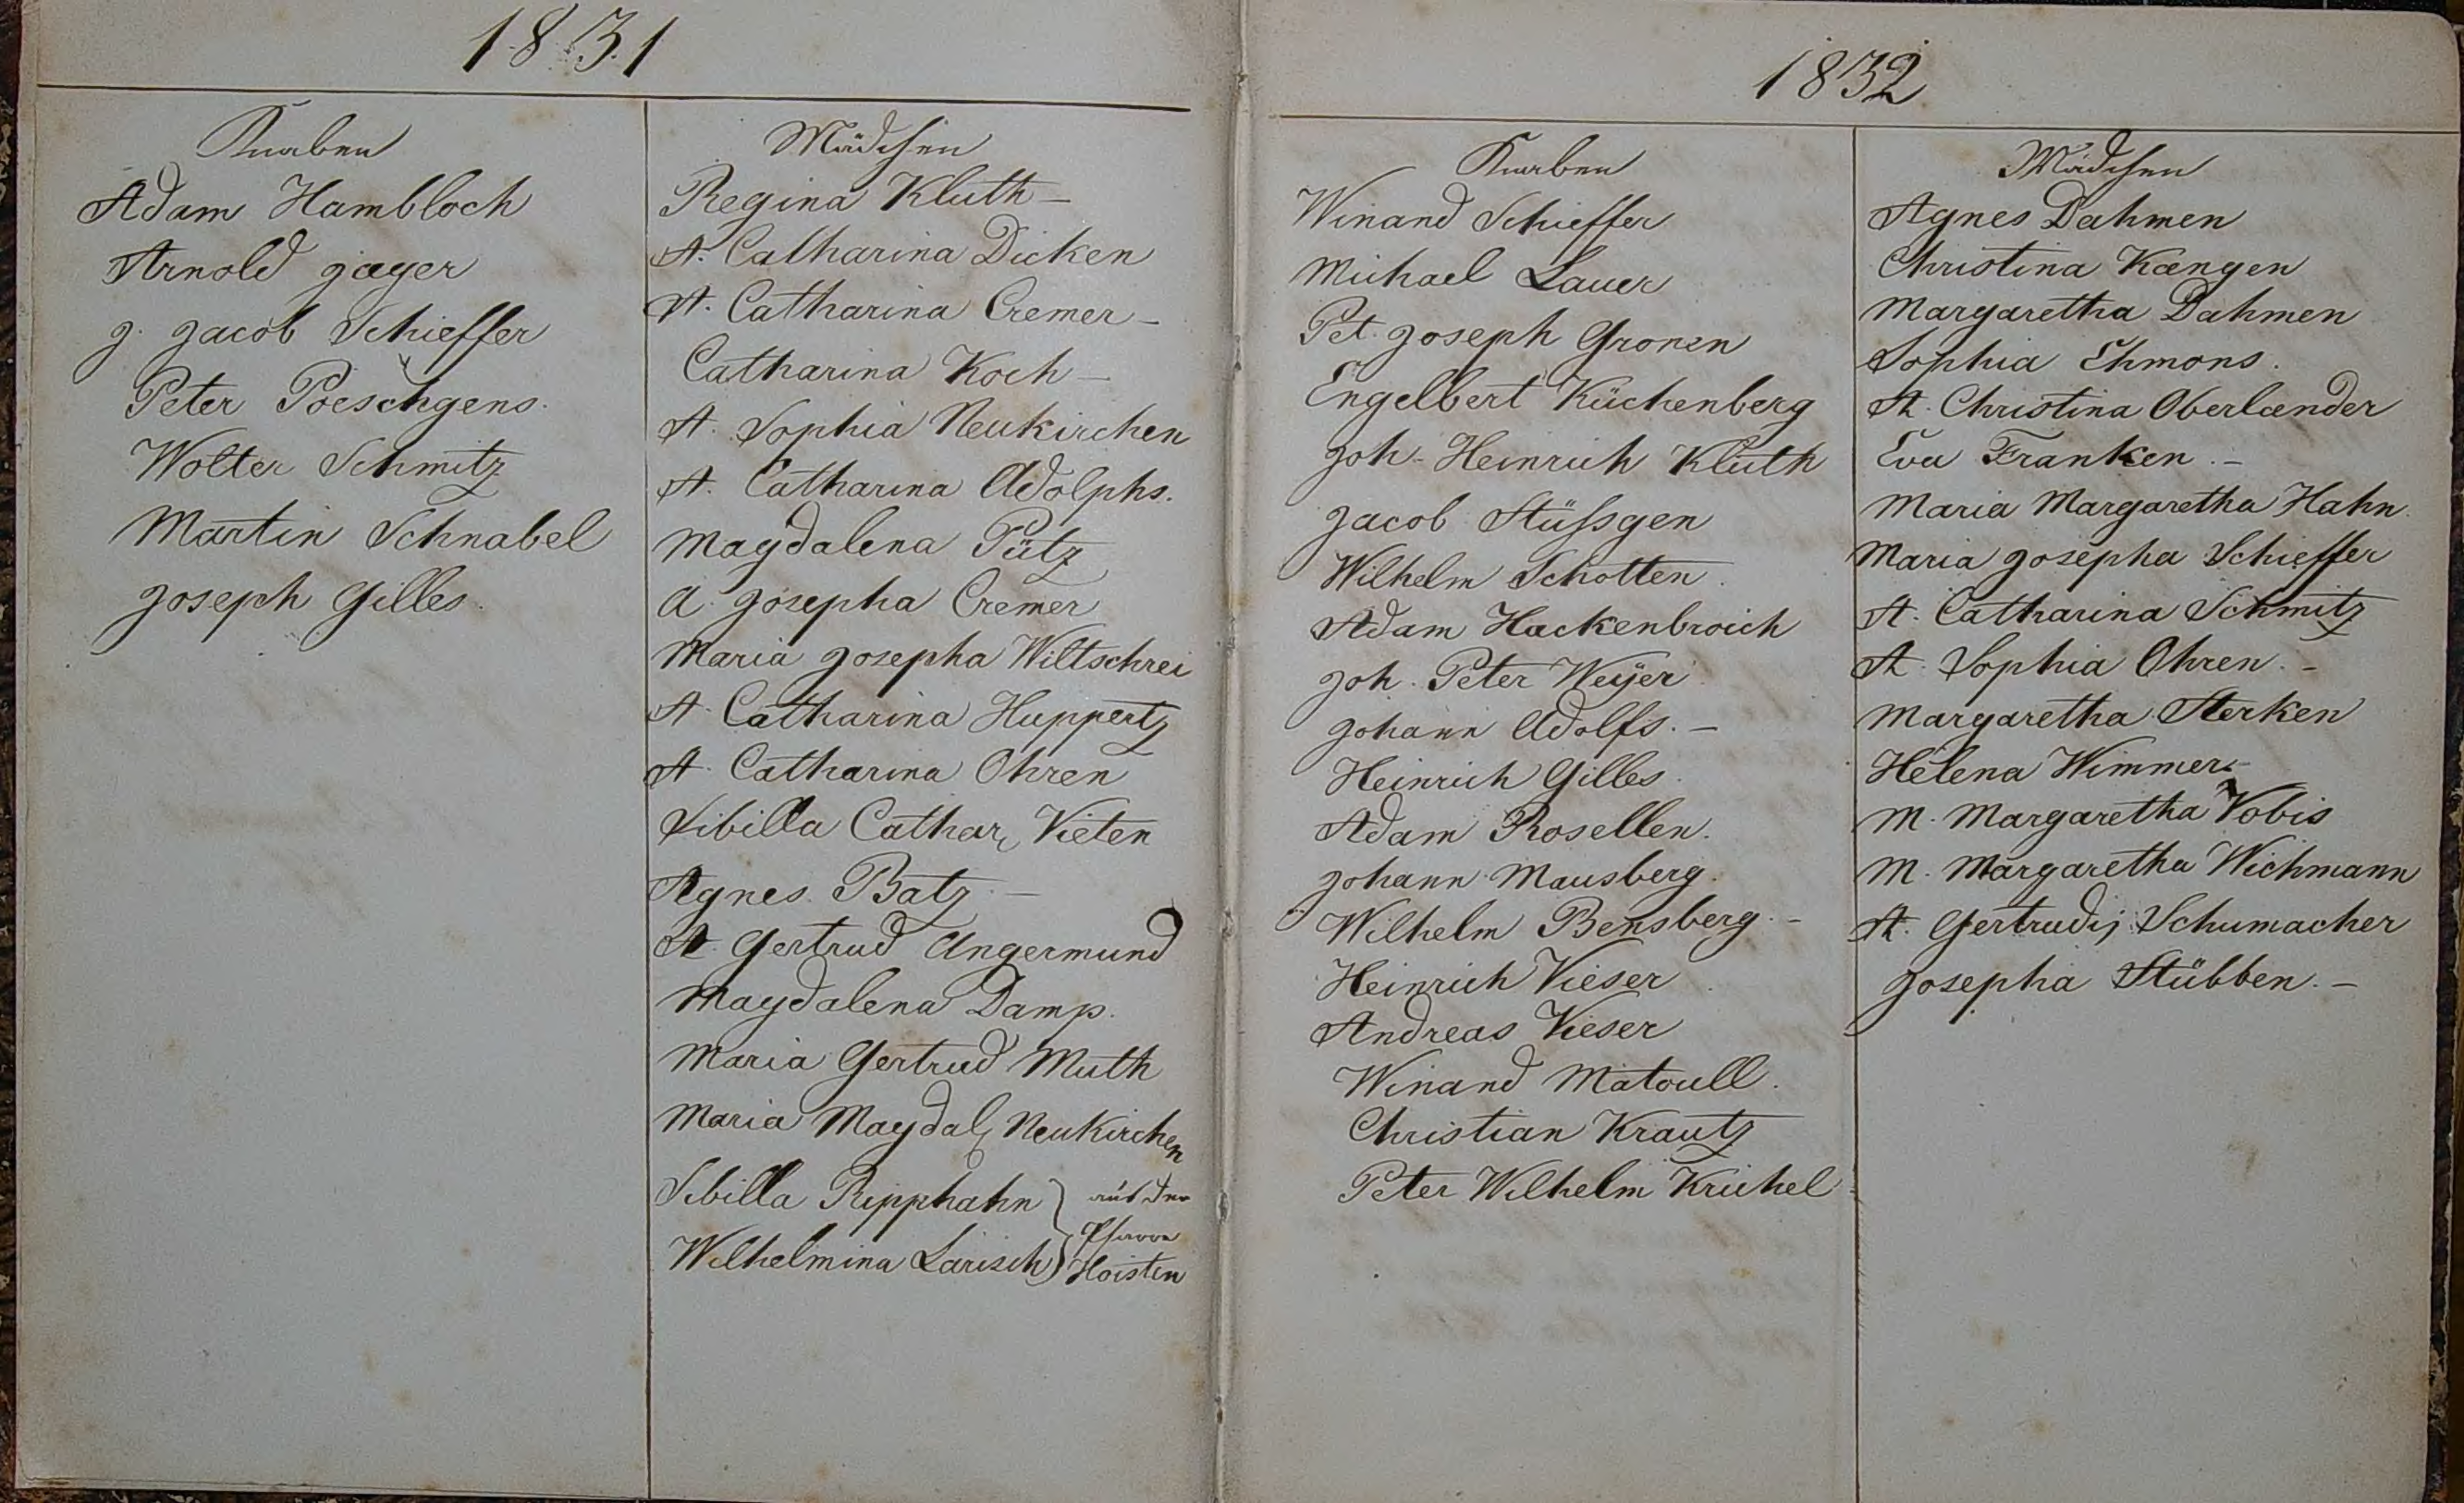 1831
Knaben
Adam Hambloch
Arnold jaeger
J. Jacob Schieffer
Peter Poeschgens.
Wolter Schmitz
Martin Schnabel
Joseph Gilles.
Mädchen
Regina Kluth –
A. Catharina Dicken
A. Catharina Cremer –
Catharina Koch –
A. Sophia Neukirchen
A. Catharina Adolphs.
Magdalena Pütz
A Josepha Cremer
Maria Josepha Wiltschrei
A. Catharina Huppertz
A. Catharina Ohren
Sibilla Cathar, Vieten
Agnes Batz –
A. Gertrud Angermund
Magdalena Damp.
Maria Gertrud Muth
Maria Magdal, Neukirchen
Sibilla Ripphahn } aus der
Pfarre
Wilhelmina Larisch } Hoisten
1832
Knaben
Winand Schieffer
Michael Lauer
Pet. Joseph Gronen
Engelbert Küchenberg
Joh. Heinrich Kluth
Jacob Stüßgen
Wilhelm Schotten.
Adam Hackenbroich
Joh. Peter Weÿer
Johann Adolfs. –
Heinrich Gilles.
Adam Rosellen.
Johann Mausberg.
Wilhelm Bensberg. –
Heinrich Vieser
Andreas Vieser
Winand Matoull.
Christian Krautz
Peter Wilhelm Krichel
Mädchen
Agnes Dahmen
Christina Kaengen
Margaretha Dahmen
Sophia Ehmons.
A. Christina Oberlaender
Eva Franken. –
Maria Margaretha Hahn.
Maria Josepha Schieffer
A. Catharina Schmitz
A. Sophia Ohren. –
Margaretha Sterken
Helena Wimmers
M. Margaretha Vobis
M. Margaretha Wichmann
A. Gertrudis Schumacher
Josepha Stübben. –